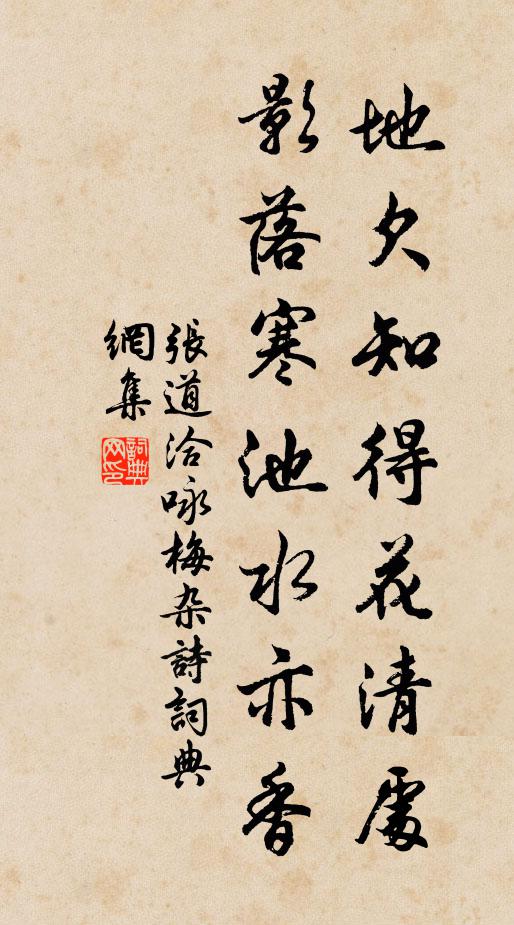 地久知得花清處
影落寒池水亦香
張道洽咏梅杂詩詞典
網集
詞典
网印